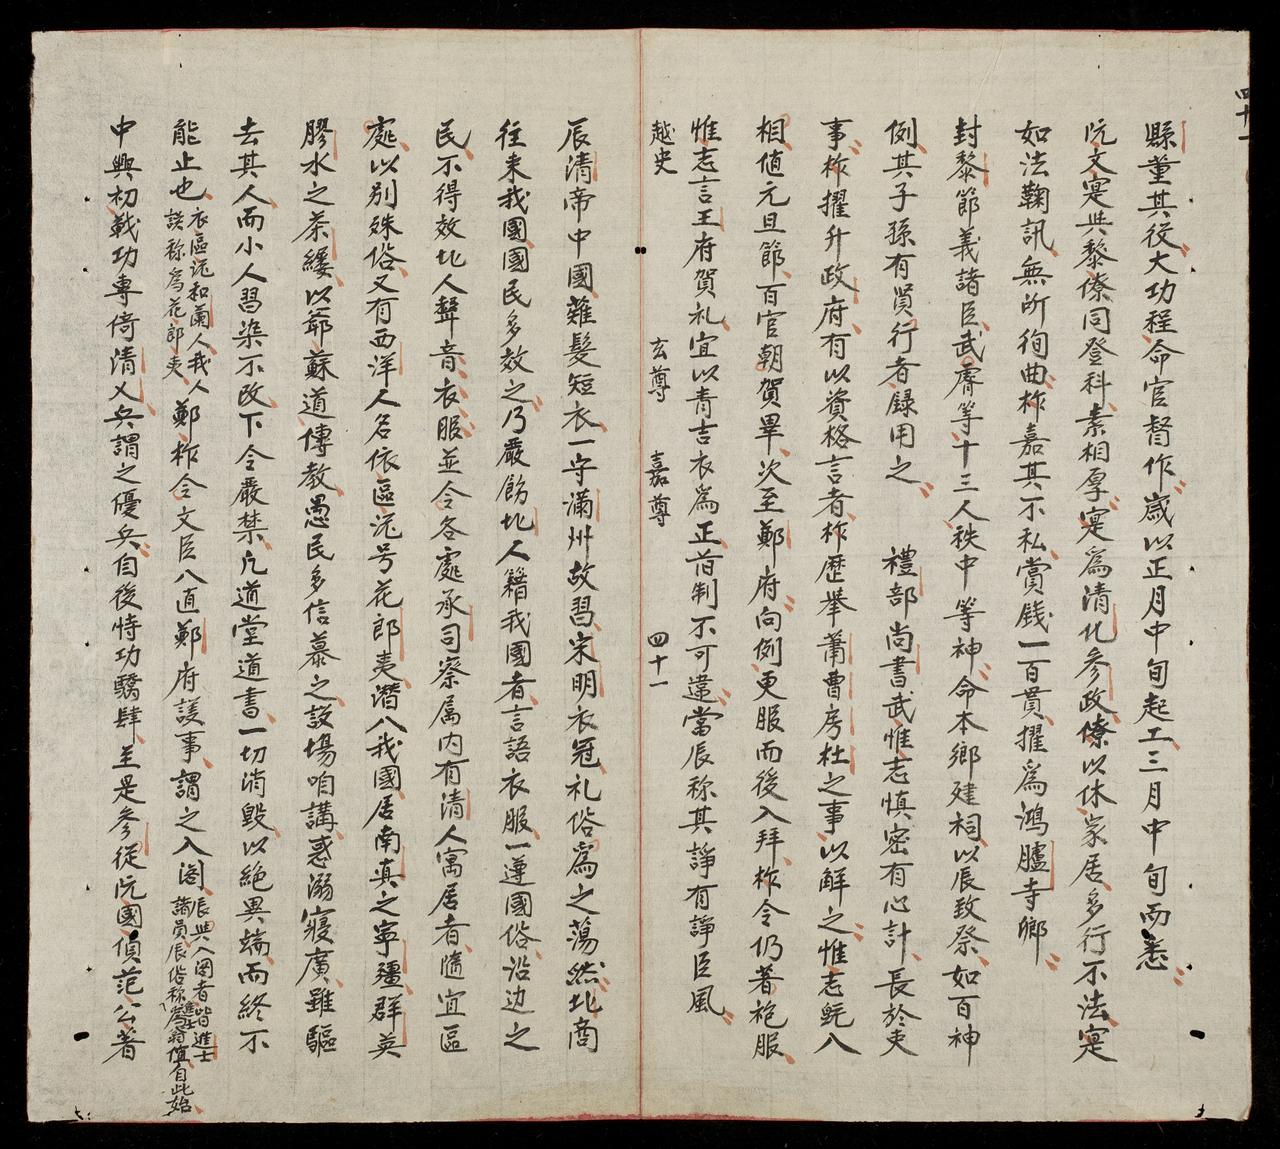 四十一
縣董其役大功程命官督作歲以正月中旬起工三月中旬而悉
阮文寔與黎僚同登科素相厚寔爲清化參政僚以休家居多行不法寔
如法鞫訊無所徇曲柞嘉其不私賞錢一百貫擢爲鴻臚寺鄉
封黎節義諸臣武睿等十三人秩中等神命本鄉建祠以辰致祭如百神
例其子孫有賢行者録用之 禮部尚書武惟志慎密有心計長於吏
事柞擢升政府有以資格言者柞歷舉蕭曹房杜之事以解之惟志既入
相値元旦節百官朝賀畢次至鄭府向例更服而後入拜柞令仍著袍服
惟志言王府賀礼宜以青吉衣爲正啙制不可違當辰称其諍有諍臣風
越史 玄尊 嘉尊 四十一
辰清帝中國薙髮短衣一守滿州故習宋明衣冠礼俗爲之蕩然北商
往来我國國民多效之乃嚴飭北人籍我國者言語衣服一遵國俗沿边之
民不得效北人聲音衣服並令各處承司察属内有清人寓居者隨宜區
處以别殊俗又有西洋人名依區泥号花郎夷潛入我國居南真之寧疆群英
膠水之茶縷以爺蘇道傳教愚民多信慕之設場咱講惑溺寖廣雖驅
去其人而小人習染不改下令嚴禁凡道堂道書一切消毀以絶異端而終不
能止也衣區泥和蘭人我人
誤称爲花郎夷
鄭柞令文臣入直鄭府議事謂之入閣
辰與入閣者皆進士
諸員辰俗称進士爲翁値自此始
中興初戰功專倚清乂兵謂之優兵自後恃功驕肆至是參從阮國偵范公著